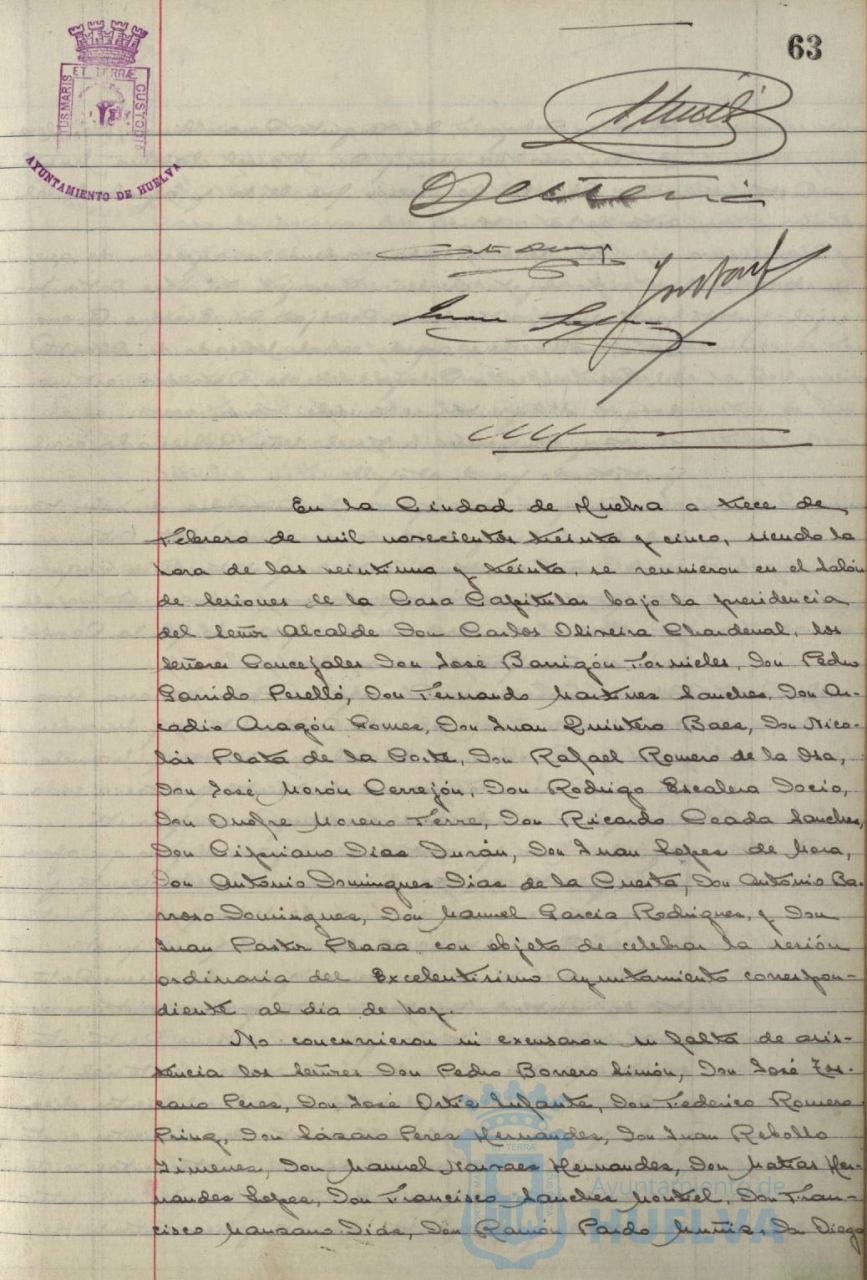 63
ET TERRÆ
CUSTODIA
AYUNTAMIENTO DE HUELVA
En la Ciudad de Huelva a trece de
Febrero de mil novecientos treinta y cinco, siendo la
hora de las veintiuna y treinta, se reunieron en el Salón
de Sesiones de la Casa Capitular bajo la presidencia
del Señor Alcalde Don Carlos Oliveira Chardenal, los
Señores Concejales Don José Barrigón Fornieles, Don Pedro
Garrido Perelló, Don Fernando Martines Sanches, Don Ar-
cadio Aragón Gomes, Don Juan Quintero Baes, Don Nico-
lás Plata de la Corte, Don Rafael Romero de la Osa,
Don José Morón Cerrejón, Don Rodrigo Escalera Docio,
Don Onofre Moreno Ferre, Don Ricardo Ceada Sanches,
Don Cipriano Dias Durán, Don Juan Lopes de Mora,
Don Antonio Domingues Dias de la Cuesta, Don Antonio Ba-
rroso Domingues, Don Manuel Garcia Rodrigues, y Don
Juan Pastor Plasa con objeto de celebrar la sesión
ordinaria del Excelentisimo Ayuntamiento correspon-
diente al dia de hoy.
No concurrieron ni excusaron su falta de asis-
tencia los Señores Don Pedro Borrero Limón, Don José Tos-
cano Peres, Don José Ortis Infante, Don Federico Romero
Don Lásaro Peres Hernándes, Don Juan Rebollo
Jimenes, Don Manuel Narvaes Hernandes, Don Matias Her-
nandes Lopes, Don Francisco Sanches Montiel, Don Fran-
cisco Mansano Dias, Don Ramón Pardo Muñis, Dn Diego
Ayuntamiento de
HUELVA